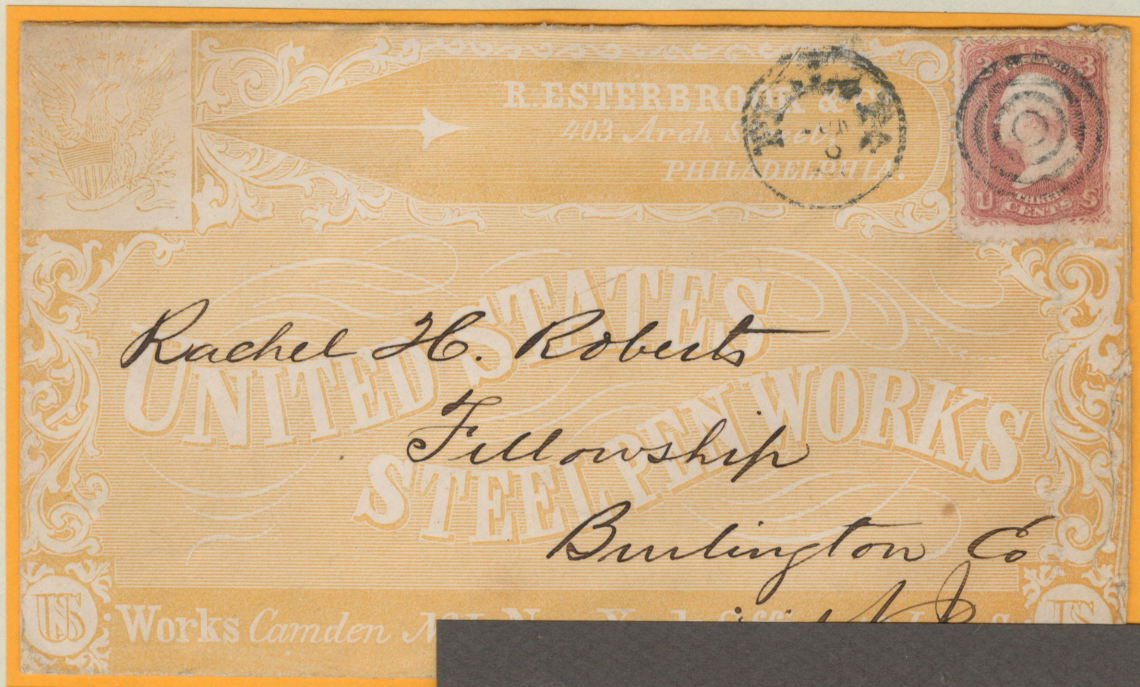 R. ESTERBROOK &
403 Arch Street
PHILADELPHIA.
PHILA PA
3 3
U S
THREE
CENTS
UNITED STATES
STEEL PEN WORKS
Rachel H. Roberts
Fellowship
Burlington Co
N J
US
Works Camden N.J. New York
US